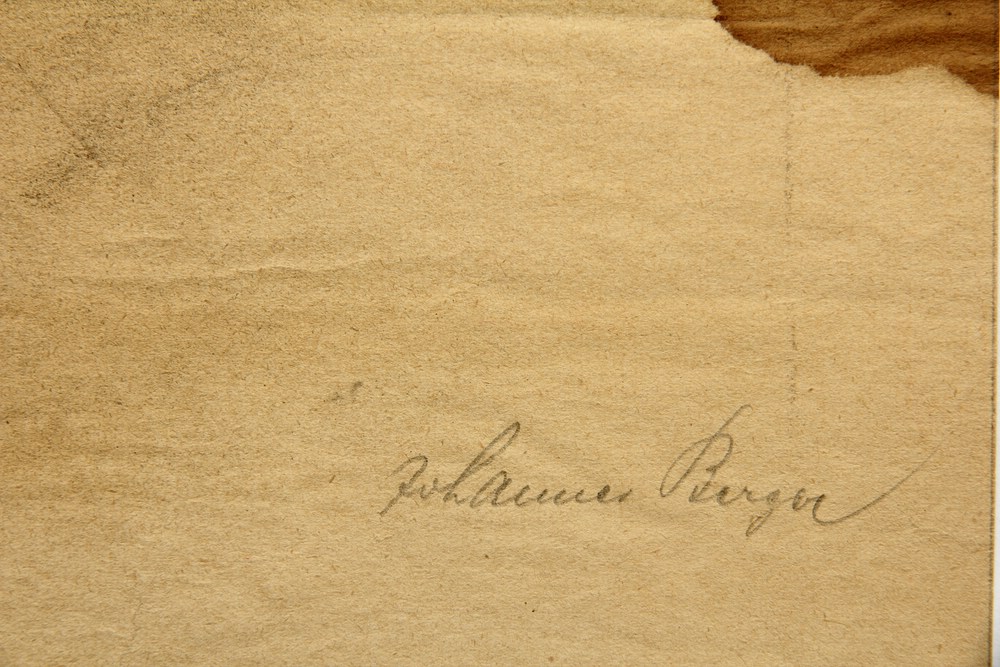 Johannes Berger